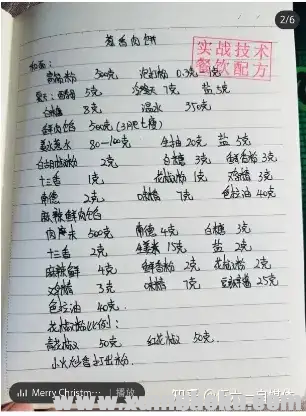 2/6
葱香肉饼
实战技术
餐饮配方
和面：
500克 泡打粉 0.3克
5克 冷水 7克 盐 5克
白糖 8克 温水 350克
鲜肉馅 500克（3肥七瘦）
姜水 80—100克 生抽 20克 盐 5克
白胡椒粉 2克 白糖 3克 鲜香粉 3克
十三香 1克 花椒粉 1克 鸡精 3克
2克 味精 7克 色拉油 40克
麻辣鲜肉馅
肉 500克 4克 白糖 3克
十三香 2克 15克 盐 2克
麻辣鲜 4克 鲜香粉 2克 花椒粉 2克
鸡精 3克 味精 7克 25克
色拉油 40克
花椒粉比例：
青花椒 50克 红花椒 50克
小火炒香打出粉
Merry Christm… 播放
知乎